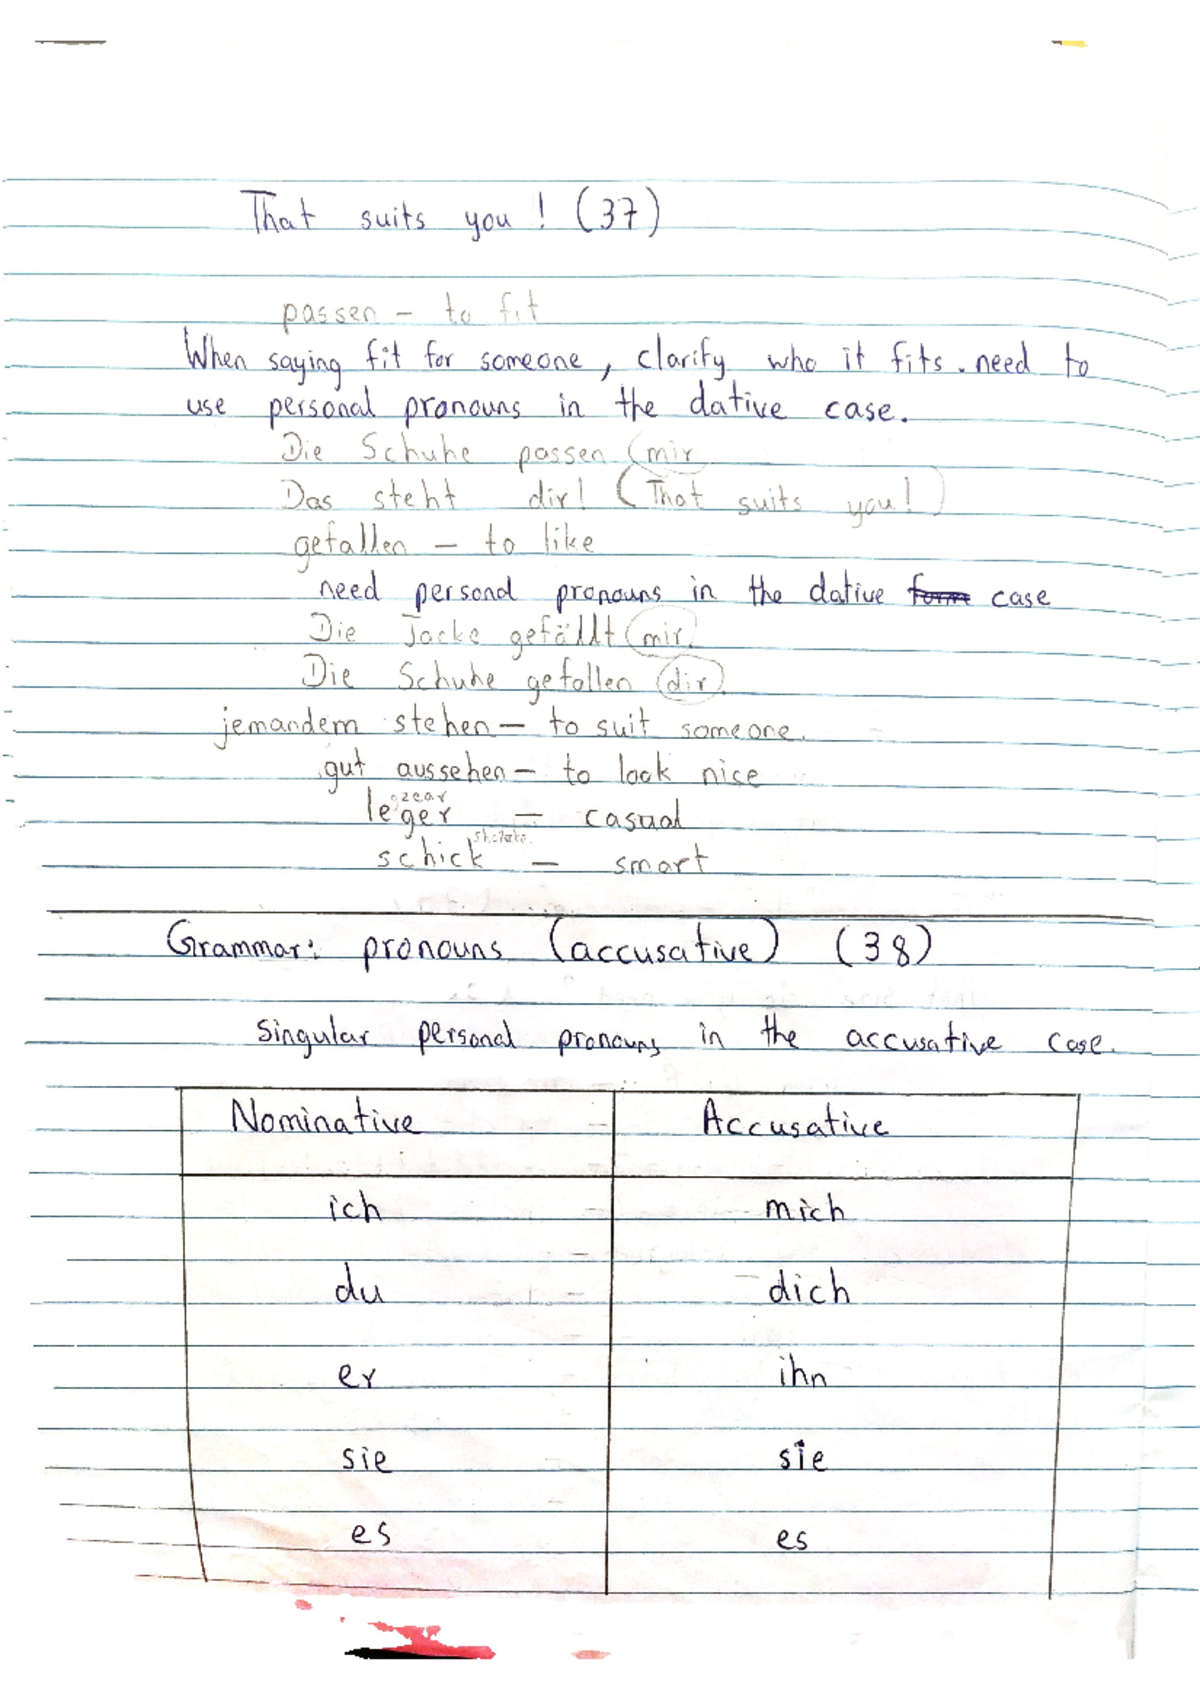 That suits you! (37)
passen - to fit
When saying fit for someone, clarify who it fits. need to
use personal pronouns in the dative case.
Die Schuhe passen (mir
Das steht dir! (That suits you!)
gefallen - to like
need personal pronouns in the dative form case
Die Jacke gefällt (mir.)
Die Schuhe gefallen (dir).
jemandem stehen - to suit someone.
gut aussehen - to look nice
leger - casual
schick - smart
Grammar: pronouns (accusative) (38)
Singular personal pronouns in the accusative case.
Nominative Accusative
ich mich
du dich
er ihn
sie sie
es es